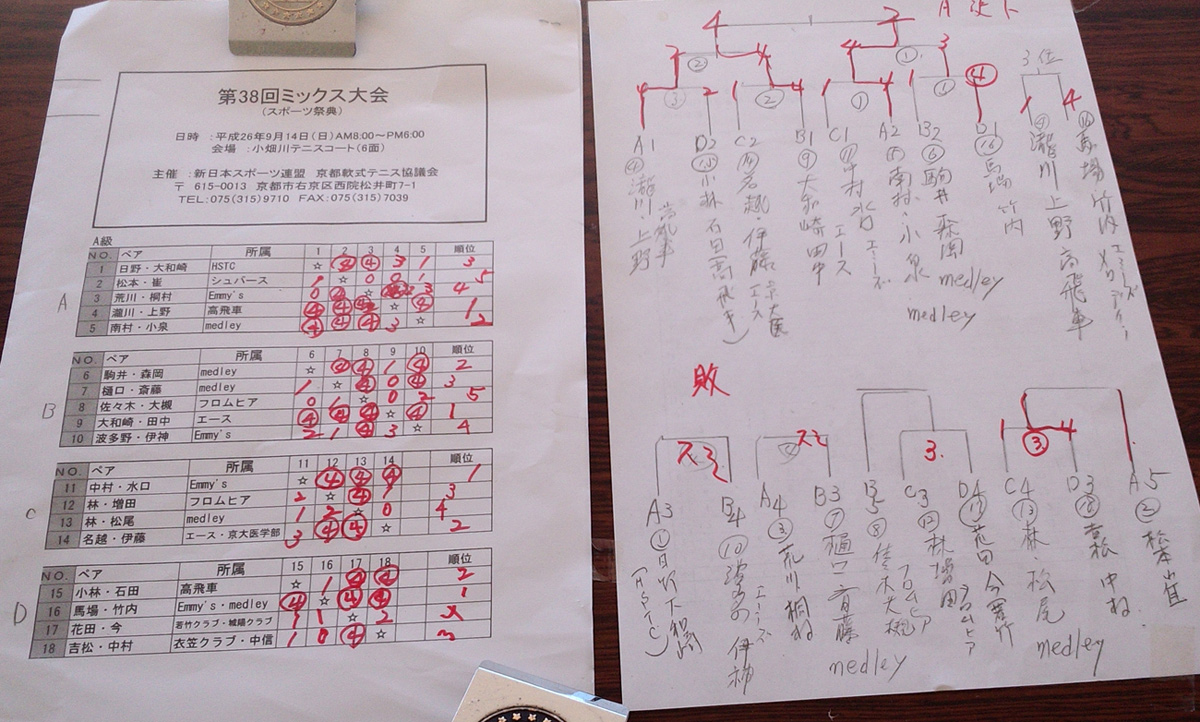 第38回ミックス大会
(スポーツ祭典)
日時 :平成26年9月14日(日)AM8:00~PM6:00
会場 :小畑川テニスコート(6面)
主催 :新日本スポーツ連盟 京都軟式テニス協議会
〒 615-0013 京都市右京区西院松井町7-1
TEL:075(315)9710 FAX:075(315)7039
A級
A
NO. ペア 所属 1 2 3 4 5 順位
1 日野・大和崎 HSTC ☆ ④ 3 1 3
2 松本・崔 シュバース 1 ☆ 0 0 1 5
3 荒川・桐村 Emmy's 0 4
4 瀧川・上野 高飛車 ④ ④ ☆ 1
5 南村・小泉 medley ④ ④ ④ 3 ☆ 2
B
NO. ペア 所属 6 7 8 9 10 順位
6 駒井・森岡 medley ☆ ④ ④ 1 ④ 2
7 樋口・斎藤 medley 1 ☆ ④ 0 ④ 3
8 佐々木・大槻 フロムヒア 0 1 ☆ 0 2 5
9 大和崎・田中 エース ④ ④ ④ ☆ ④ 1
10 波多野・伊神 Emmy's 2 1 ④ 3 ☆ 4
C
NO. ペア 所属 11 12 13 14 順位
11 中村・水口 Emmy's ☆ ④ ④ ④ 1
12 林・増田 フロムヒア 2 ☆ ④ 1 3
13 林・松尾 medley 1 2 ☆ 0 4
14 名越・伊藤 エース・京大医学部 3 ④ ④ ☆ 2
D
NO. ペア 所属 15 16 17 18 順位
15 小林・石田 高飛車 ☆ 1 ④ ④ 2
16 馬場・竹内 Emmy's・medley ④ ☆ ④ ④ 1
17 花田・今 若竹クラブ・城陽クラブ 1 1 ☆ 2
18 吉松・中村 衣笠クラブ・中信 1 0 ④ ☆ 3
4 2
② 4 4 ① 3
③ 2 1 ② 4 1 ① 4 1 ④
3位
1 4
A1 ④ 瀧川・上野 高飛車
D2 ⑮ 小林 石田 高飛車
C2 ⑭ 名越・伊藤 エース 京大医
B1 ⑨ 大和崎 田中 エース
C1 ⑪ 中村 水口 エミーズ
A2 ⑤ 南村・小泉 medley
B2 ⑥ 駒井 森岡 medley
D1 ⑯ 馬場 竹内
④ 瀧川 上野 高飛車
⑯ 馬場 竹内 エミーズ
敗
3. 1 ③ 4
A3 ① 日野 大和崎 (HSTC)
B4 ⑩ 波多野 伊神
A4 ③ 荒川 桐村 エミーズ
B3 ⑦ 樋口 斎藤 medley
B5 ⑧ 佐々木 大槻 フロムヒア
C3 ⑫ 林 増田 フロムヒア
D4 ⑰ 花田 今 若竹
C4 ⑬ 林 松尾 medley
D3 ⑱ 吉松 中村
A5 ② 松本 崔